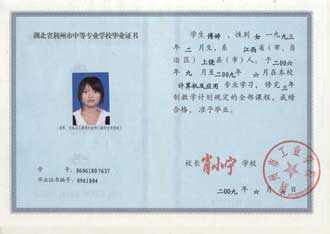 湖北省荆州市中等专业学校毕业证书
学号：0606180?637
毕业证书编号：0961804
学生 傅婷，性别 女 一九九三
年二月生，系 江西 省（市、自
治区）上饶 县（市）人。于二00六
年九月至二00九年六月在本校
计算机及应用 专业学习，修完 三年
制教学计划规定的全部课程，成绩
合格，准予毕业。
校长 肖小宁 学校
二00九年六月 日